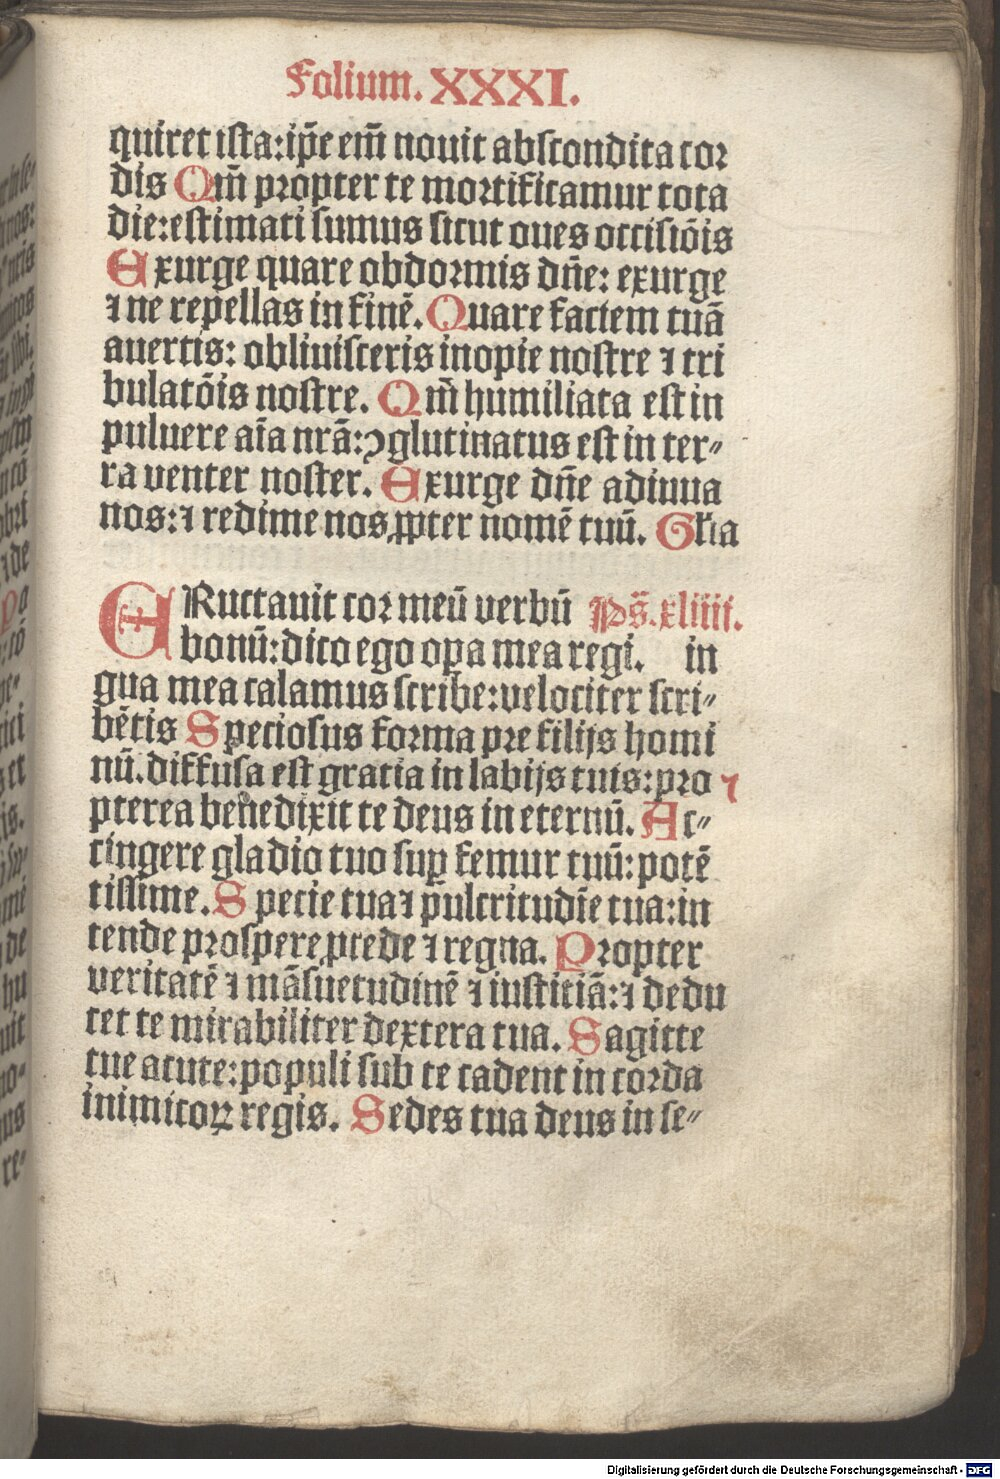 Folium. XXXI.
quiret ista: ip̄e em̄ nouit abscondita cor
dis Qm̄ propter te mortificamur tota
die: estimati sumus sicut oues occisiōis
Exurge quare obdormis dn̄e: exurge
⁊ ne repellas in finē. Quare faciem tuā
auertis: obliuisceris inopie nostre ⁊ tri
bulatōis nostre. Qm̄ humiliata est in
puluere aīa nrā: ꝯglutinatus est in ter⸗
ra venter noster. Exurge dn̄e adiuua
nos: ⁊ redime nos ꝓpter nomē tuū. Gl̓ia
ERuctauit cor meū verbū Ps̄. xliiii.
bonū: dico ego oꝑa mea regi. in
gua mea calamus scribe: velociter scri⸗
bētis Speciosus forma pre filijs homi
nū. diffusa est gracia in labijs tuis: pro
⁊
pterea benedixit te deus in eternū. Ac⸗
cingere gladio tuo suꝑ femur tuū: potē
tissime. Specie tua ⁊ pulcritudīe tua: in
tende prospere ꝓcede ⁊ regna. Propter
veritatē ⁊ māsuetudinē ⁊ iusticiā: ⁊ dedu
cet te mirabiliter dextera tua. Sagitte
tue acute: populi sub te cadent in corda
inimicoꝝ regis. Sedes tua deus in se⸗
Digitalisierung gefördert durch die Deutsche Forschungsgemeinschaft - DFG